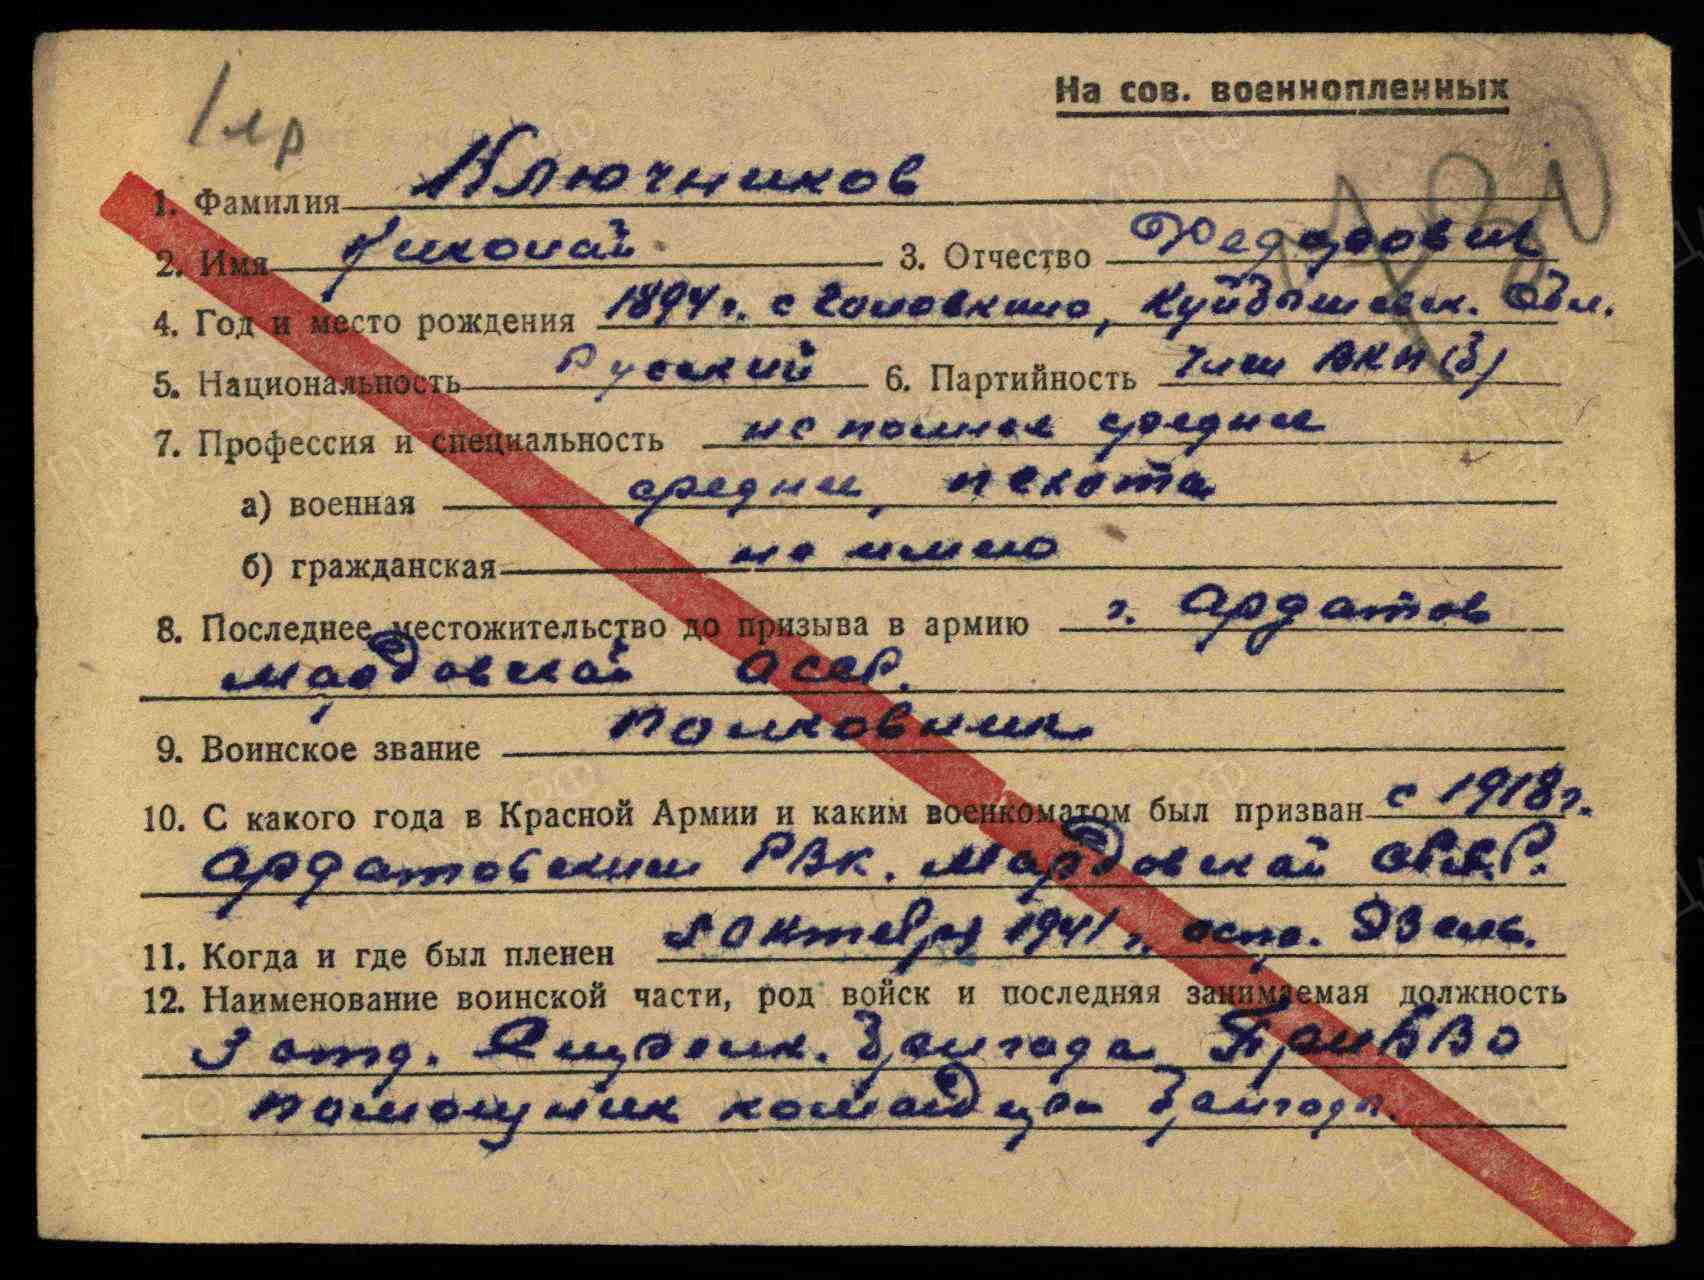 На сов. военнопленных
1. Фамилия Ключников
2. Имя Николай 3. Отчество Федорович
4. Год и место рождения 1894 г. с Головкино, Куйбышевск. Обл.
5. Национальность Русский 6. Партийность Член ВКП(б)
7. Профессия и специальность не полное среднее
а) военная средне, пехота
б) гражданская не имею
8. Последнее местожительство до призыва в армию г. Ардатов
Мордовской АССР.
9. Воинское звание полковник
10. С какого года в Красной Армии и каким военкоматом был призван с 1918 г.
Ардатовским РВК. Мордовской АССР.
11. Когда и где был пленен Октября 1941 г. остр. Эзель.
12. Наименование воинской части, род войск и последняя занимаемая должность
3 отд. бригада ПрибВО
помощник командира бригады.